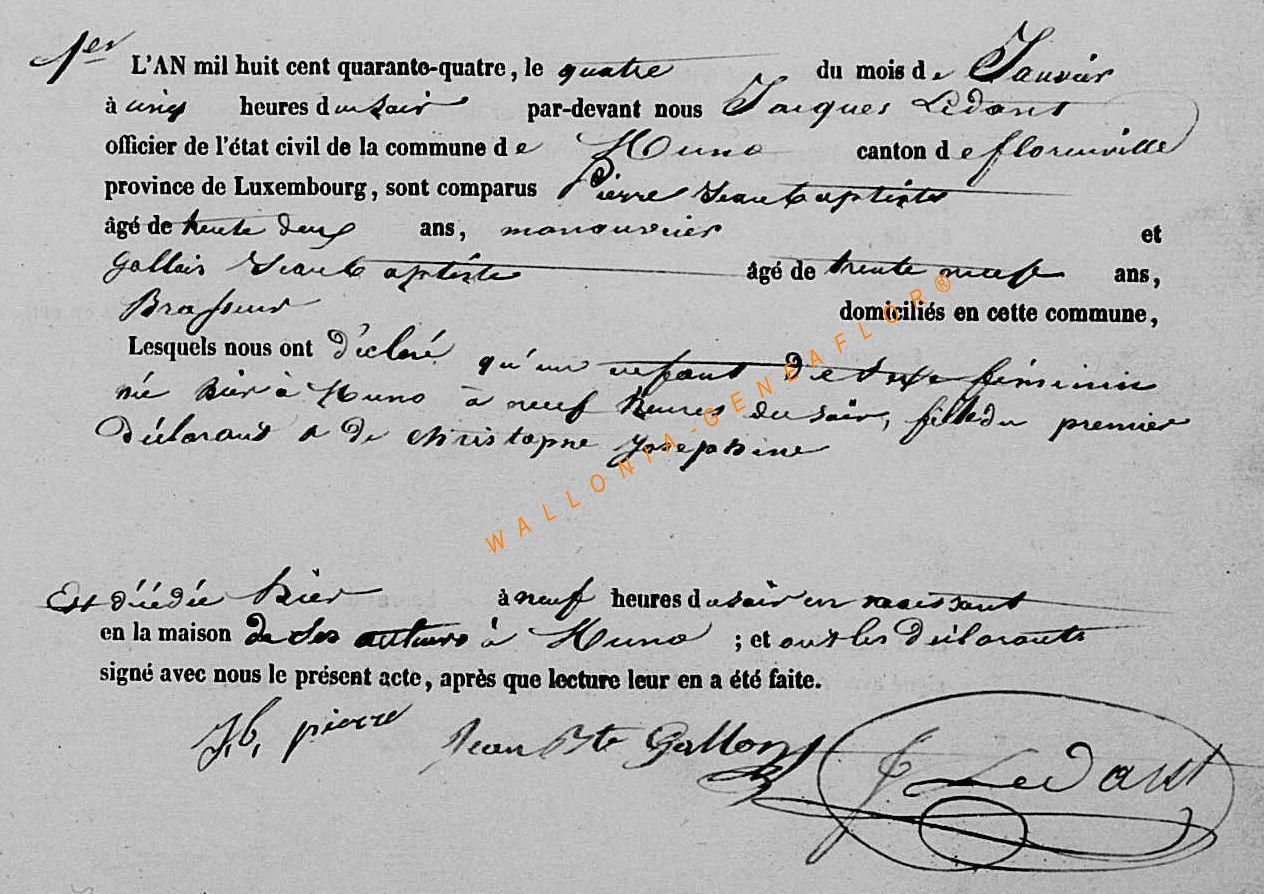 1er L'AN mil huit cent quarante-quatre, le quatre du mois de Janvier
à cinq heures du soir par-devant nous Jacques Ledant
officier de l'état civil de la commune de Muno canton de florenville
province de Luxembourg, sont comparus Pierre Jean baptiste
âgé de trente deux ans, manouvrier et
Jean baptiste âgé de trente neuf ans,
Brasseur domiciliés en cette commune,
Lesquels nous ont déclaré qu'un enfant de sexe féminin
née hier à Muno à neuf heures du soir, fille du premier
déclarant & de christophe Josephine
Est décédée hier à neuf heures du soir en naissant
en la maison de ses à Muno ; et ont les déclarants
signé avec nous le présent acte, après que lecture leur en a été faite.
J,b, pierre Jean Bte J Ledant
WALLONIA-GENEAFLOR®